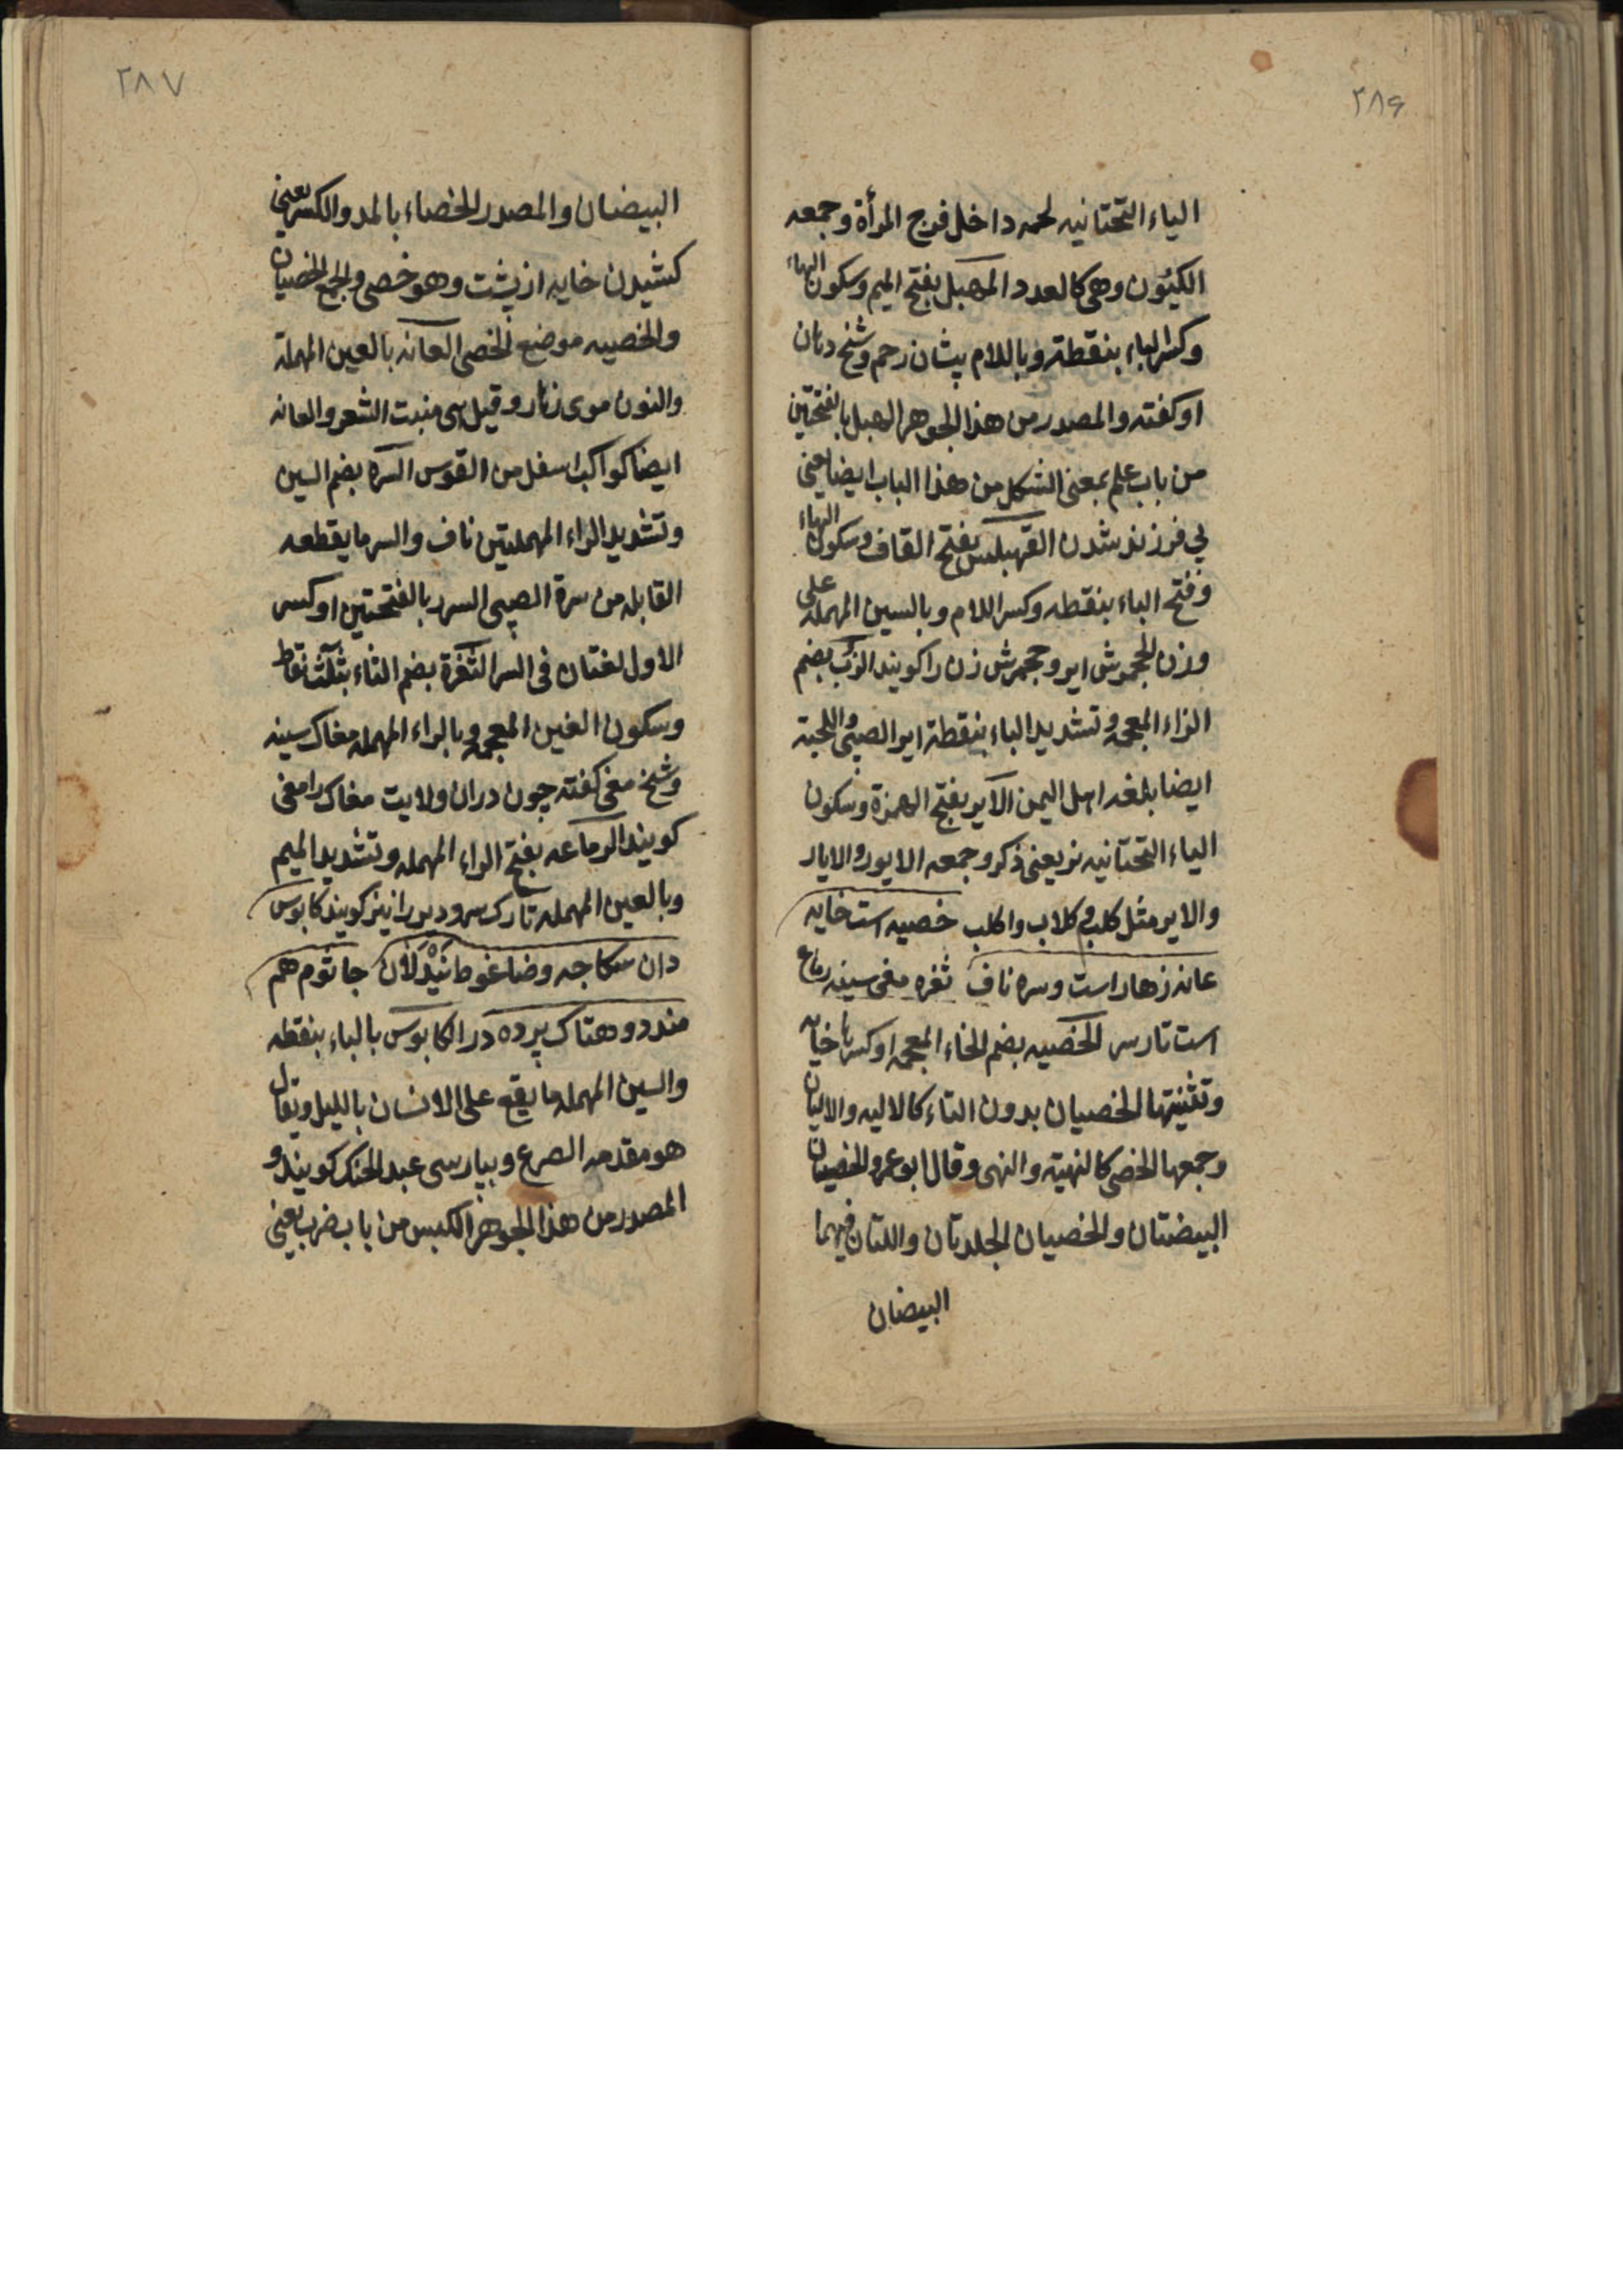 ٢٨۶
الیاء التحتانیه لحمه داخل فرج المرأة وجمعه
الکیون وهی کالعدد المهبل بفتح المیم وسکون الهاء
وکسر الباء بنقطة وباللام پشان رحم وشیخ دهان
او کفته والمصدر من هذا الجوهر الهبل بالفتحتین
من باب علم بمعنی الثکل من هذا الباب ایضا یعنی
بی فرزند شدن القهبلس بفتح القاف وسکون الهاء
وفتح الباء بنقطه وکسر اللام وبالسین المهمله علی
وزن الجحمرش ایر وجحمرش زن را کویند الزب بضم
الزاء المعجمه وتشدید الباء بنقطة ایر الصبی واللحیة
ایضا بلغه اهل الیمن الایر بفتح الهمزة وسکون
الیاء التحتانیه نر یعنی ذکر وجمعه الایور والایار
والایر مثل کلب وکلاب واکلب خصیه است خایه
عانه زهار است وسره ناف ثغره مغی سینه رماع
است تارسر الخصیه بضم الخاء المعجمه او کسرها خایه
وتثنیتها الخصیان بدون التاء کالالیه والالیان
وجمعها الخصی کالنهیة والنهی وقال ابوعمرو الخصیتان
البیضتان والخصیان الجلدتان واللتان فیهما
البیضان
٢٨٧
البیضان والمصدر الخصاء بالمد والکسر یعنی
کشیدن خایه از پشت وهو خصی والجمع الخصیان
والخصیه موضع الخصی العانه بالعین المهملة
والنون موی زهار وقیل هی منبت الشعر والعانه
ایضا کواکب اسفل من القوس السره بضم السین
وتشدید الراء المهملتین ناف والسر ما یقطعه
القابله من سرة الصبی السرر بالفتحتین او کسر
الاول لغتان فی السر الثغرة بضم الثاء بثلث نقاط
وسکون الغین المعجمه وبالراء المهمله مغاک سینه
وشیخ مغی کفته چون دران ولایت مغاک را مغی
کویند الرماعه بفتح الراء المهمله وتشدید المیم
وبالعین المهمله تارک سر ودبر را نیز کویند کابوس
دان سکاجه وضاغوط نیدلان جاثوم هم
مندد وهتاک پرده در الکابوس بالباء بنقطه
والسین المهمله ما یقع علی الانسان باللیل ویقال
هو مقدمه الصرع وبپارسی عبد الجنک کویند و
المصدر من هذا الجوهر الکبس من باب ضرب یعنی